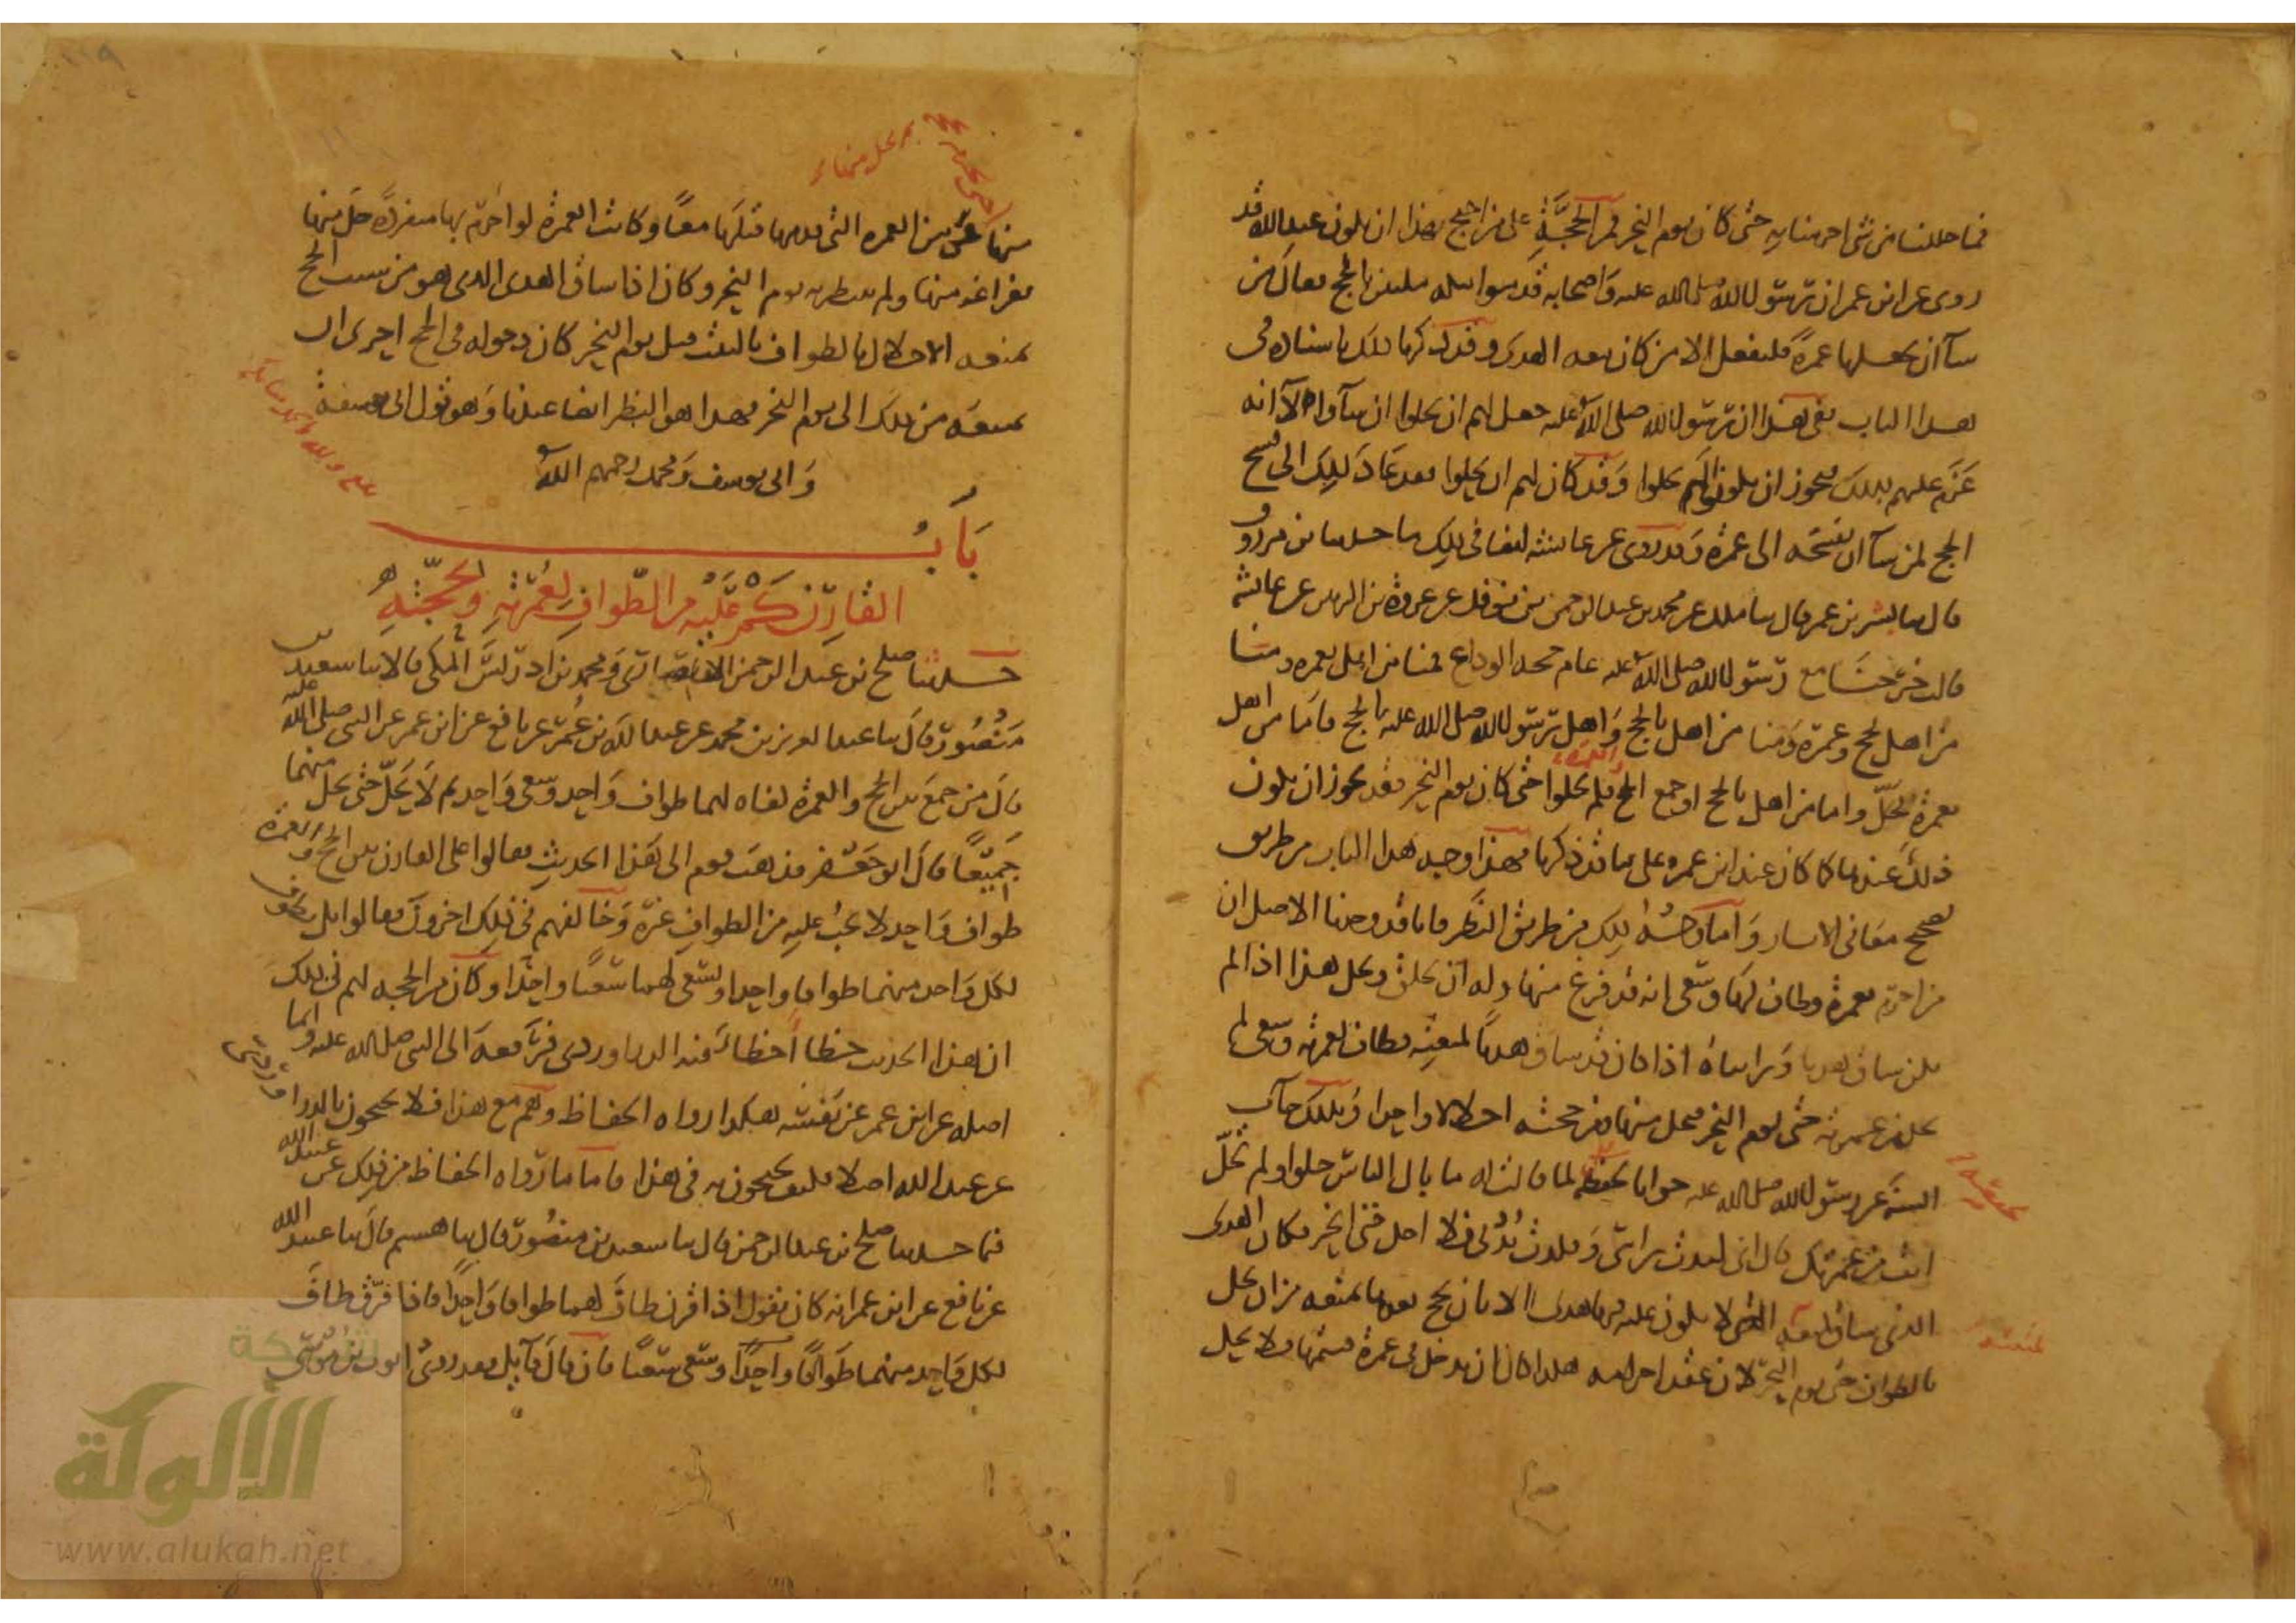 فما حللنا من شي احرمنا به حتى كان يوم النحر فمن الحجة على من احتج بهذا ان يكون عبد الله قد
روى عن ابن عمر ان رسول الله صلى الله عليه واصحابه قدموا مكة ملبين بالحج فقال من
شآ ان يجعلها عمرة فليفعل الا من كان معه الهدى وقد ذكرنا ذلك باسناده فى
هذا الباب ففى هذا ان رسول الله صلى الله عليه جعل لهم ان يحلوا ان شآوا الا انه
عزم عليهم بذلك فيجوز ان يكونوا لم يحلوا وقد كان لهم ان يحلوا فقد عاد ذلك الى فسخ
الحج لمن شآ ان يفسخه الى عمرة وقد روى عن عائشة ايضا فى ذلك ما حدثنا ابن مرزوق
قال ثنا بشر بن عمر قال ثنا ملك عن محمد بن عبد الرحمن بن نوفل عن عروة بن الزبير عن عائشة
قالت خرجنا مع رسول الله صلى الله عليه عام حجة الوداع فمنا من اهل بعمرة ومنا
من اهل بحج وعمرة ومنا من اهل بالحج واهل رسول الله صلى الله عليه بالحج فاما من اهل
بعمرة فحل واما من اهل بالحج او جمع الحج والعمرة فلم يحلوا حتى كان يوم النحر فقد يجوز ان يكون
ذلك عندها كما كان عند ابن عمر وعلى ما قد ذكرنا فهذا وجه هذا الباب من طريق
تصحيح معانى الاثار واما وجه ذلك من طريق النظر فانا قد وجدنا الاصل ان
من احرم بعمرة وطاف لها وسعى انه قد فرغ منها وله ان يحلق ويحل هذا اذا لم
يكن ساق هديا ورايناه اذا كان قد ساق هديا لمتعته فطاف لعمرته وسعى لم
يحل من عمرته حتى يوم النحر فيحل منها ومن حجته احلالا واحدا وبذلك جآت
السنة عن رسول الله صلى الله عليه جوابا لحفصة لما قالت له ما بال الناس حلوا ولم تحل
انت من عمرتك قال انى لبدت راسى وقلدت بدنى فلا احل حتى انحر فكان الهدى
الذى ساقه لمتعته التى لا يكون عليه فيها هدى الا بان يحج بعدها يمنعه من ان يحل
بالطواف حتى يوم النحر لان عقد احرامه هكذا كان ان يدخل فى عمرة فيتمها فلا يحل
حتى يحرم بحجة ثم يحل منها و
منها ومن العمرة التى قدمها قبلها معا وكانت العمرة لو احرم بها منفردة حل منها
بفراغه منها ولم ينتظر به يوم النحر وكان اذا ساق الهدى الذى هو من سبب الحج
يمنعه الاحلال بالطواف بالبيت قبل يوم النحر كان دخوله فى الحج احرى ان
يمنعه من ذلك الى يوم النحر فهذا هو النظر ايضا عندنا وهو قول ابى حنيفة
وابى يوسف ومحمد رحمهم الله
باب
القارن كم عليه من الطواف لعمرته ولحجته
حدثنا صلح بن عبد الرحمن الانصارى ومحمد بن ادريس المكى قالا ثنا سعيد بن
منصور قال ثنا عبد العزيز بن محمد عن عبيد الله بن عمر عن نافع عن ابن عمر عن النبى صلى الله عليه
قال من جمع بين الحج والعمرة كفاه لهما طواف واحد وسعى واحد ثم لا يحل حتى يحل منهما
جميعا قال ابو جعفر فذهب قوم الى هذا الحديث فقالوا على القارن بين الحج والعمرة
طواف واحد لا يجب عليه من الطواف غيره وخالفهم فى ذلك اخرون فقالوا بل يطوف
لكل واحد منهما طوافا واحدا ويسعى لهما سعيا واحدا وكان من الحجة لهم فى ذلك
ان هذا الحديث خطا اخطا فيه الدراوردى فرفعه الى النبى صلى الله عليه وانما
اصله عن ابن عمر عن نفسه هكذا رواه الحفاظ وهم مع هذا فلا يحتجون بالدراوردى
عن عبيد الله اصلا فكيف يحتجون به فى هذا فاما ما رواه الحفاظ من ذلك عن عبيد الله
فما حدثنا صلح بن عبد الرحمن قال ثنا سعيد بن منصور قال ثنا هشيم قال ثنا عبيد الله
عن نافع عن ابن عمر انه كان يقول اذا قرن طاف لهما طوافا واحدا فاذا فرق طاف
لكل واحد منهما طوافا واحدا وسعى سعيا فان قال قآيل فقد روى ايوب بن موسى
الألوكة
www.alukah.net